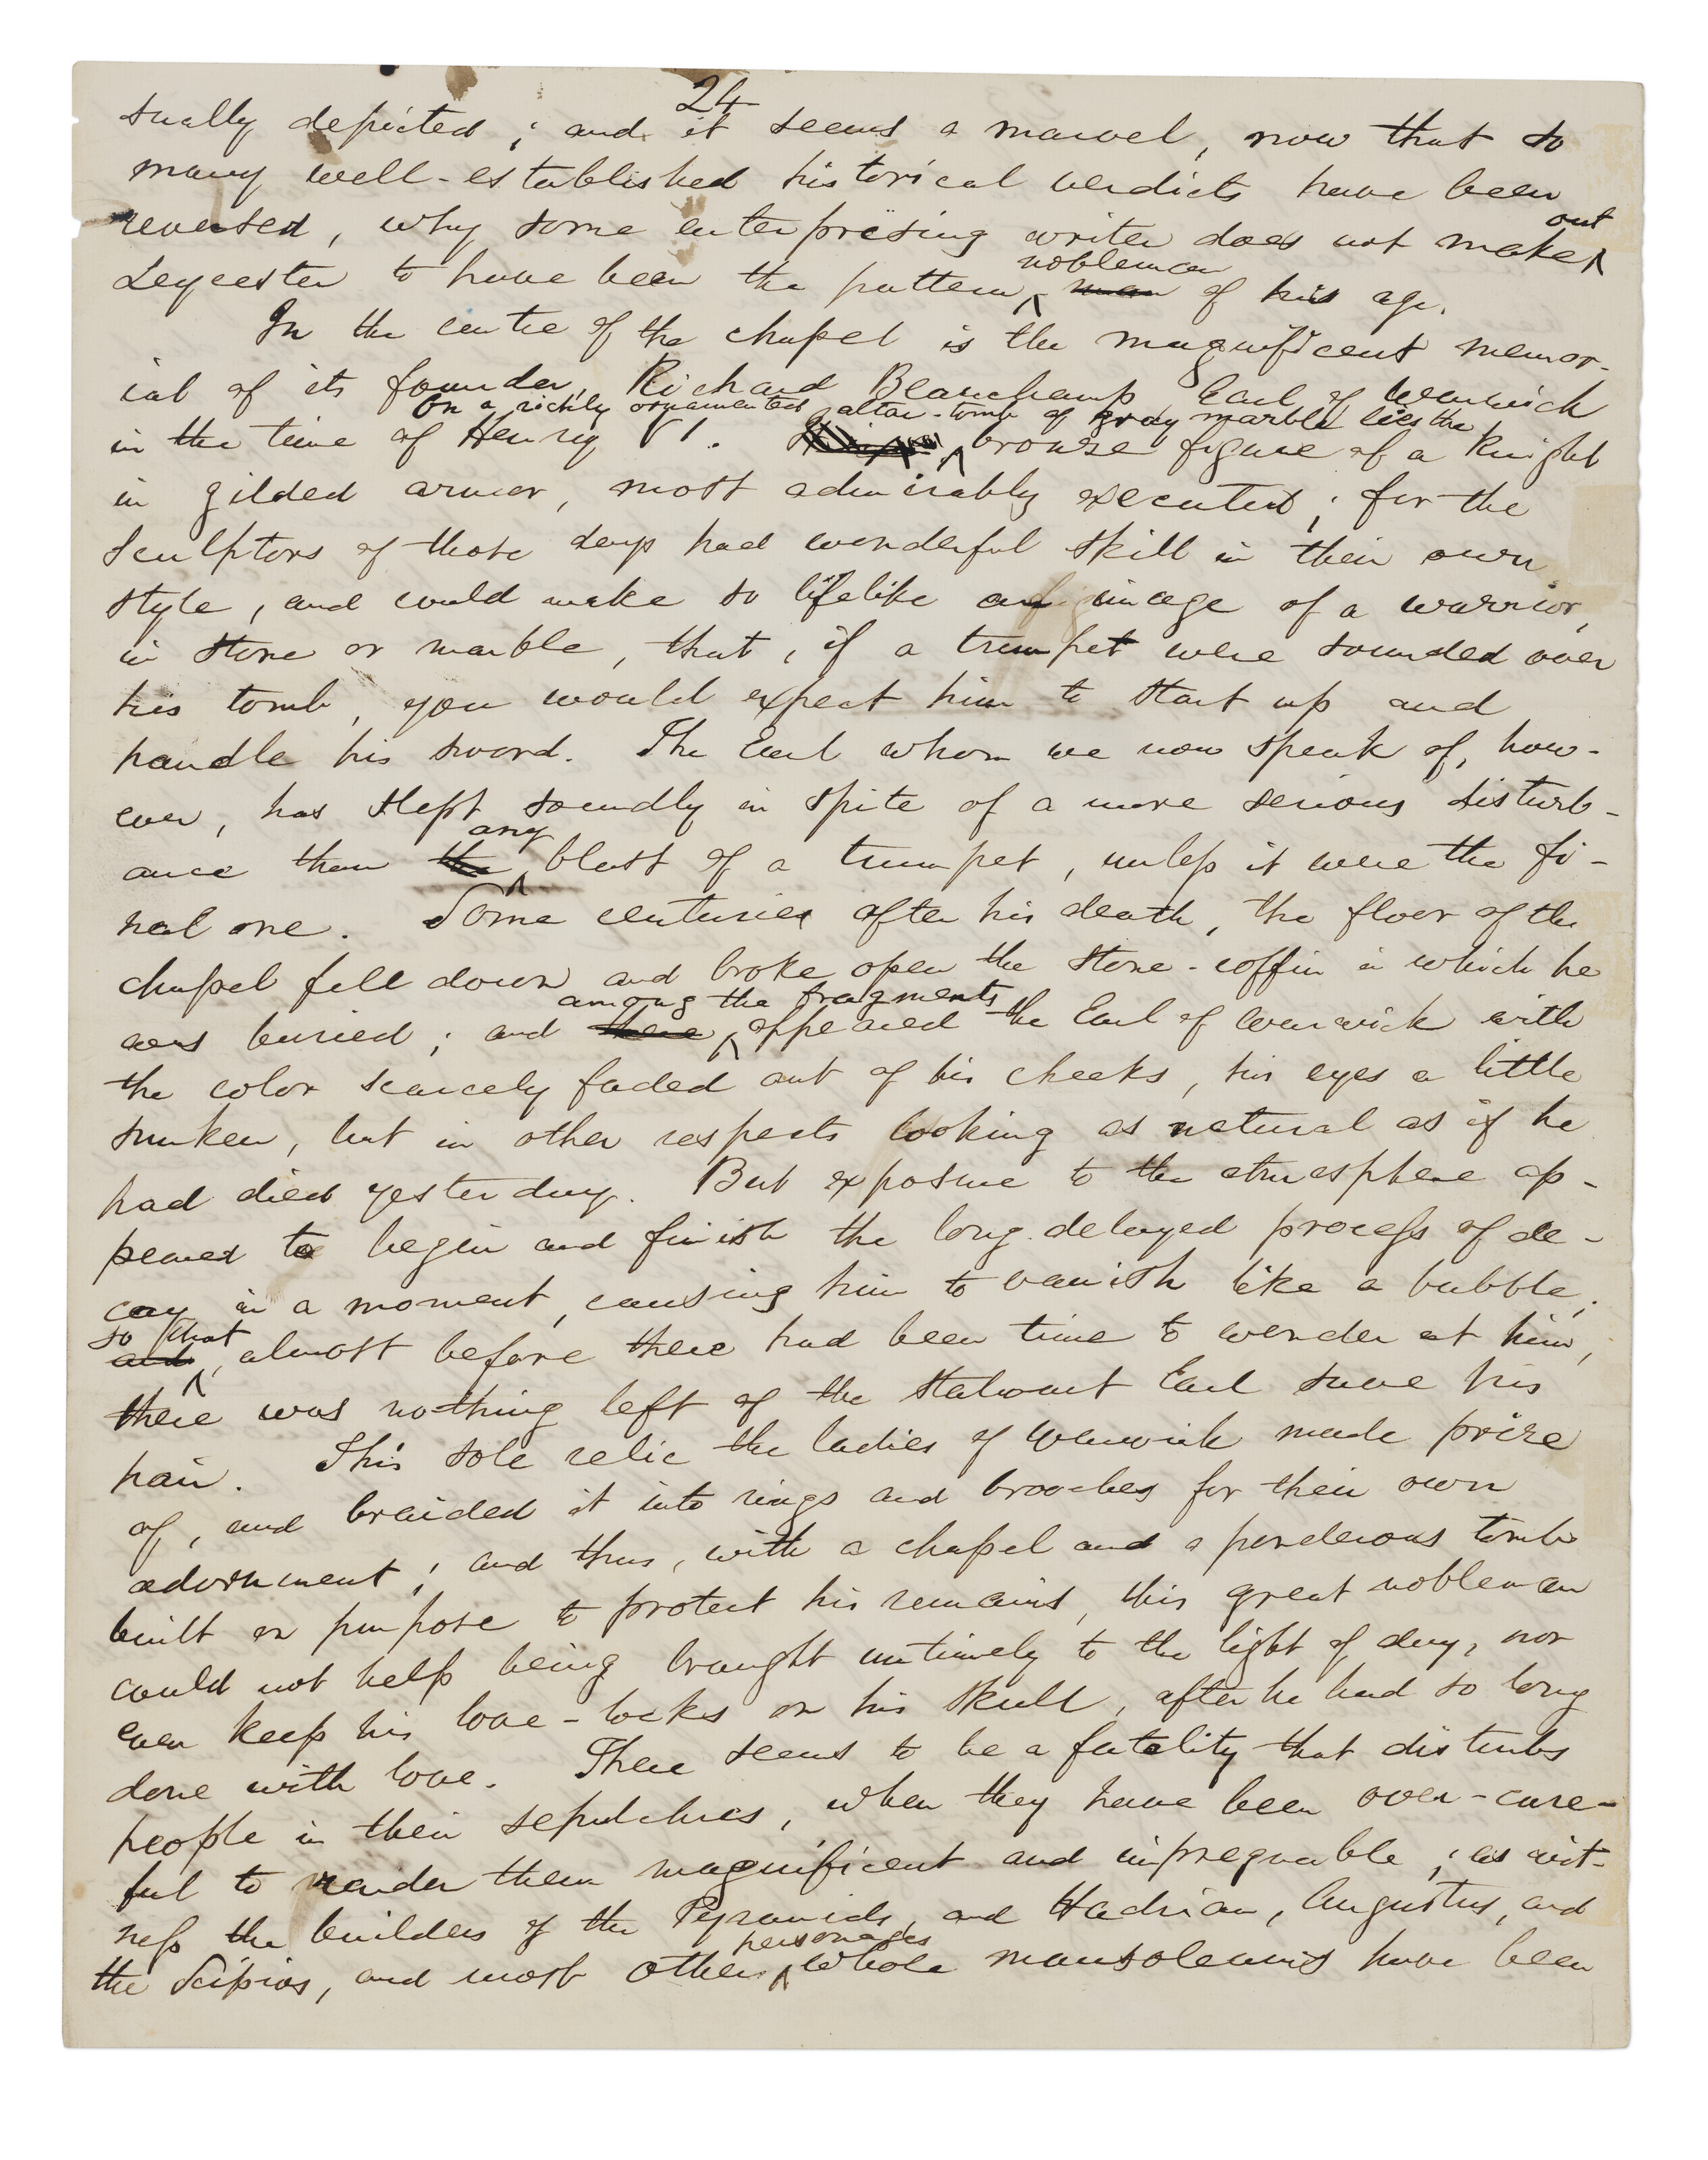 24
sually depicted; and it seems a marvel, now that so
many well-established historical verdicts have been
reversed, why some enterprising writer does not make out
Leycester to have been the pattern nobleman man of his age.
In the centre of the chapel is the magnificent memor-
ial of its founder, Richard Beauchamp, Earl of Warwick
On a richly ornamented altar-tomb of gray marble lies the
in the time of Henry VI. bronze figure of a Knight
in gilded armor, most admirably executed; for the
sculptors of those days had wonderful skill in their own
style, and could make so lifelike an image of a warrior,
in stone or marble, that, if a trumpet were sounded over
his tomb, you would expect him to start up and
handle his sword. The Earl whom we now speak of, how-
ever, has slept soundly in spite of a more serious disturb-
ance than the any blast of a trumpet, unless it were the fi-
nal one. Some centuries after his death, the floor of the
chapel fell down and broke open the stone-coffin in which he
was buried; and there among the fragments appeared the Earl of Warwick with
the color scarcely faded out of his cheeks, his eyes a little
sunken, but in other respects looking as natural as if he
had died yesterday. But exposure to the atmosphere ap-
peared to begin and finish the long-delayed process of de-
cay in a moment, causing him to vanish like a bubble;
and so that, almost before there had been time to wonder at him,
there was nothing left of the stalwart Earl save his
hair. This sole relic the ladies of Warwick made prize
of, and braided it into rings and brooches for their own
adornment; and thus, with a chapel and a ponderous tomb
built on purpose to protect his remains, this great nobleman
could not help being brought untimely to the light of day, nor
even keep his love-locks on his skull, after he had so long
done with love. There seems to be a fatality that disturbs
people in their sepulchres, when they have been over-care-
ful to render them magnificent and impregnable; as wit-
ness the builders of the Pyramids, and Hadrian, Augustus, and
the Scipios, and most other personages whose mausoleums have been